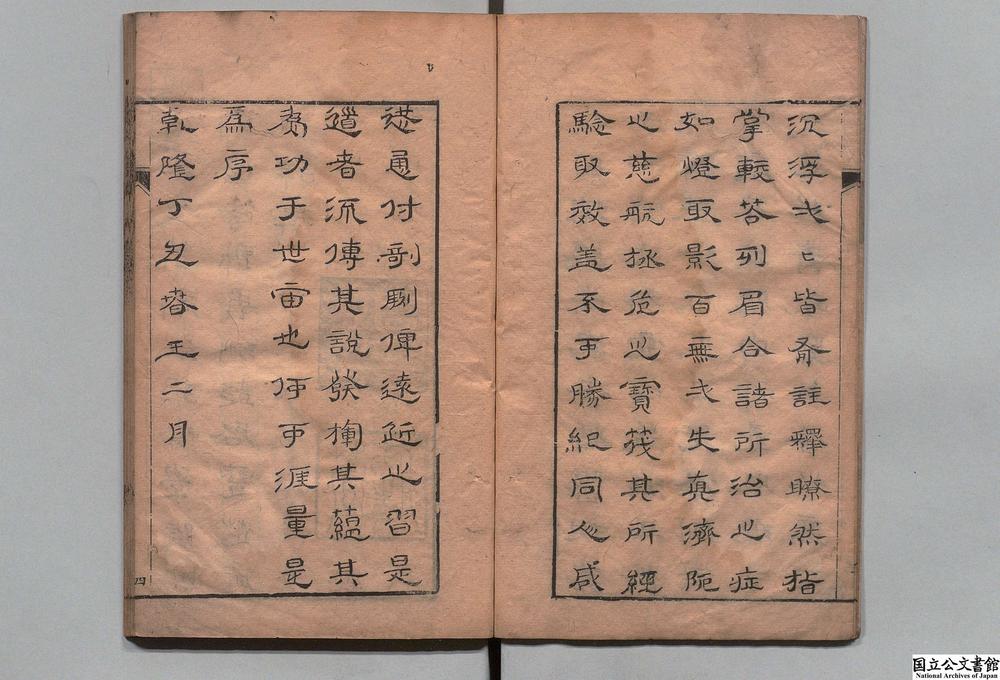 沉浮弌〻皆斎註釋瞭然指
掌較若列眉合諸所治㞢症
如燈取影百無弌失真濟阨
㞢慈航拯危㞢寶筏其所經
驗取效盖不可勝紀同人咸
慫恿付剞劂俾遠近㞢習是
道者流傳其說發擴其蘊其
為功于世宙也何可涯量是
為序
乾隆丁丑春王二月
四
国立公文書館
National Archives of Japan